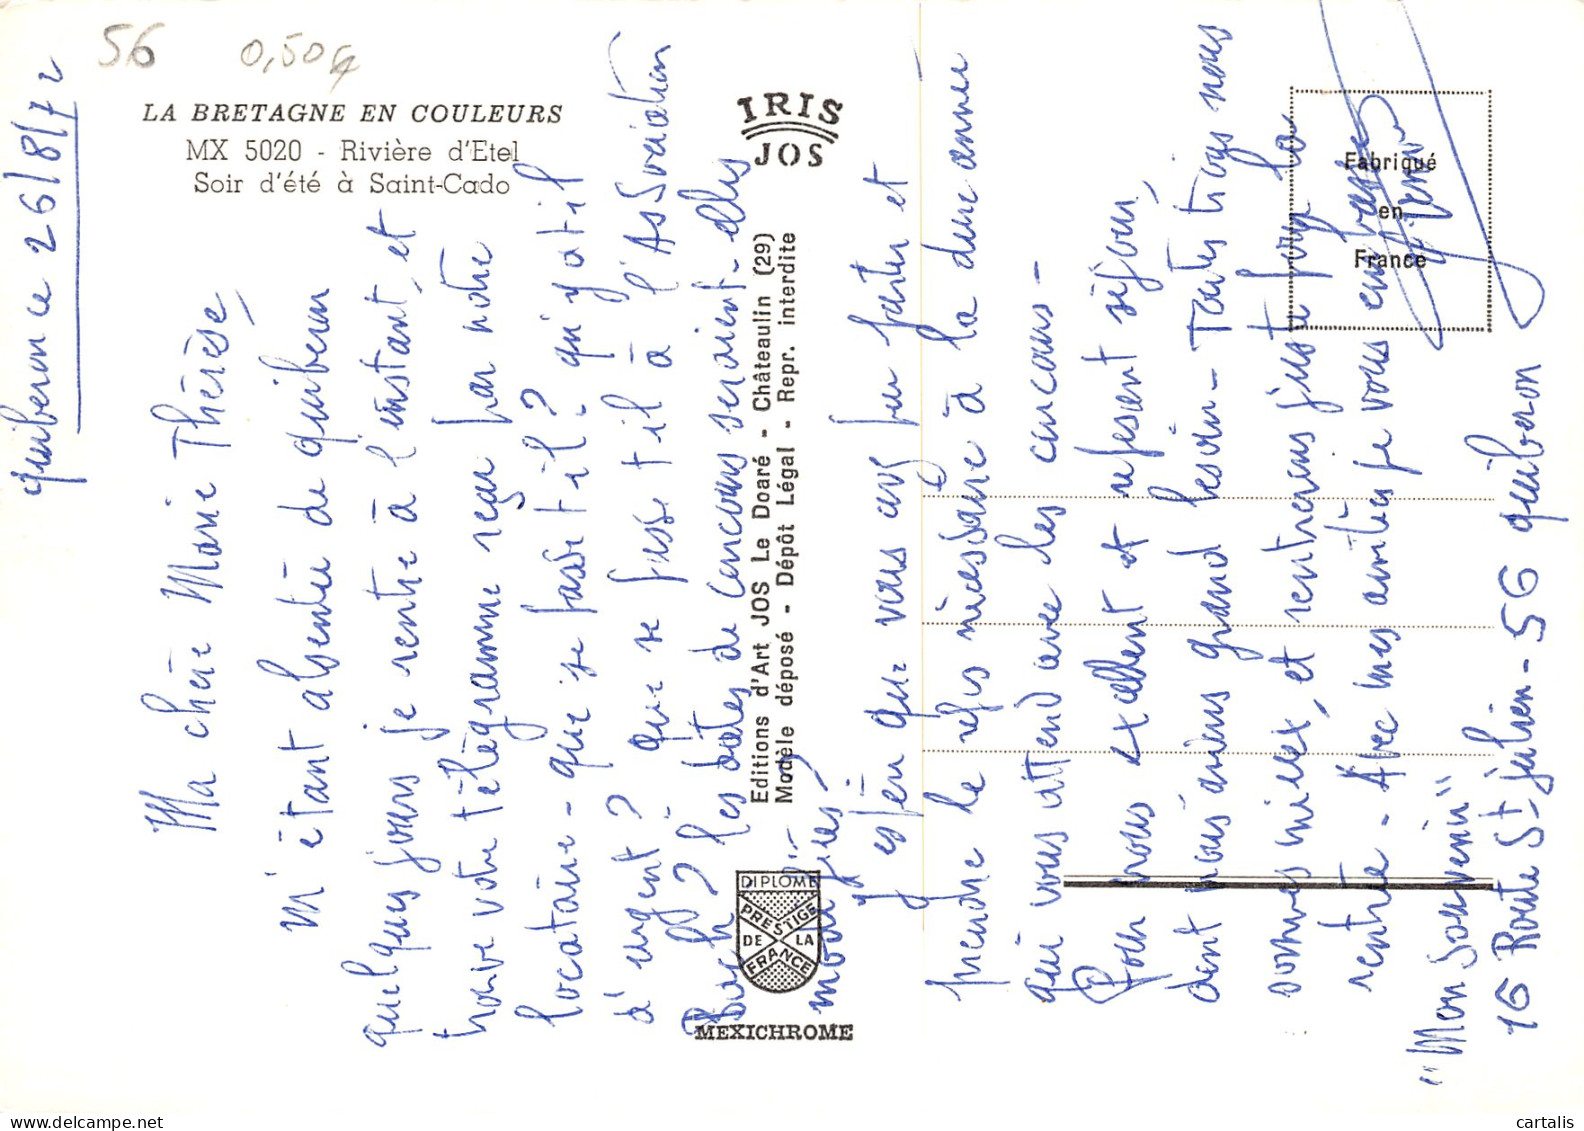 56 0,50€
LA BRETAGNE EN COULEURS
MX 5020 - Rivière d'Etel
Soir d'été à Saint-Cado
IRIS
JOS
Fabriqué
en
France
Editions d'Art JOS Le Doaré - Châteaulin (29)
Modèle déposé - Dépôt Légal - Repr. interdite
DIPLOME
PRESTIGE
DE LA
FRANCE
MEXICHROME
quiberon ce 26/8/72
Ma chère Marie Thérèse,
M'étant absentée de quiberon
quelques jours je rentre à l'instant, et
trouve votre télégramme reçu par notre
locataire - que se passe t il? qu'y a t il
d'urgent? que se passe t il à l'Association
Bach? les dates de concours seraient-elles
modifiées -
J'espère que vous avez pu partir et
prendre le repos nécessaire à la dure année
qui vous attend avec les concours -
Pour nous excellent et reposant séjour,
dont nous avions grand besoin - Toutes trois nous
sommes mieux, et rentrerons juste pour la
rentrée - Avec mes amitiés je vous embrasse
"Mon Souvenir"
16 Route St julien - 56 quiberon
cartalis